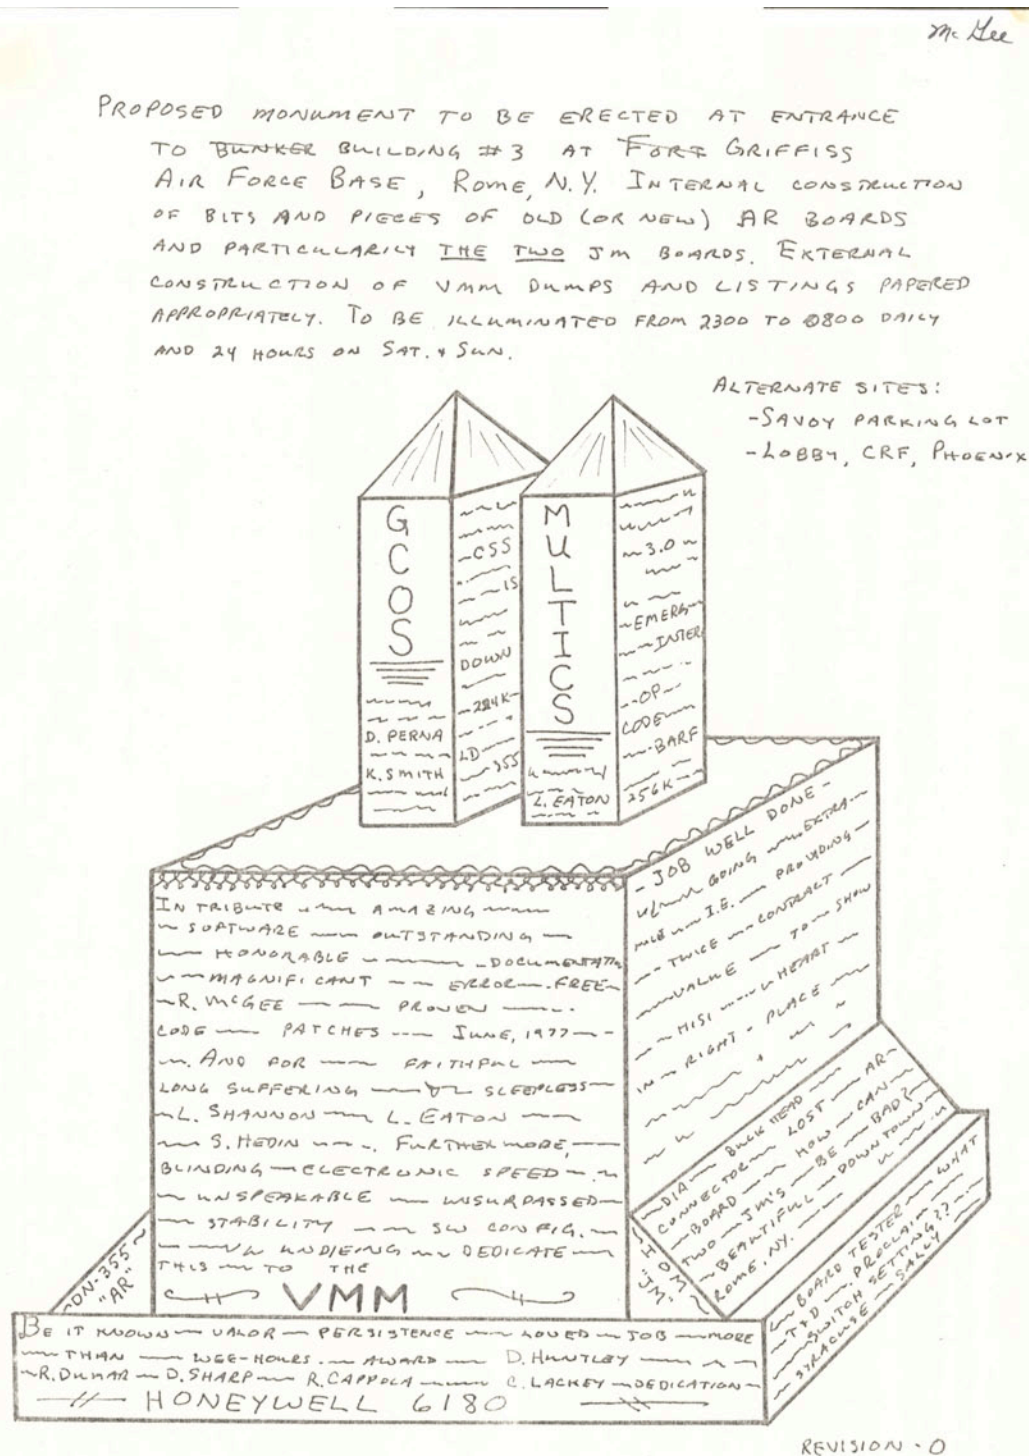 Mc Gee
PROPOSED MONUMENT TO BE ERECTED AT ENTRANCE
TO BUNKER BUILDING #3 AT FORT GRIFFISS
AIR FORCE BASE, ROME, N.Y. INTERNAL CONSTRUCTION
OF BITS AND PIECES OF OLD (OR NEW) AR BOARDS
AND PARTICULARILY THE TWO JM BOARDS. EXTERNAL
CONSTRUCTION OF VMM DUMPS AND LISTINGS PAPERED
APPROPRIATELY. TO BE ILLUMINATED FROM 2300 TO 0800 DAILY
AND 24 HOURS ON SAT. & SUN.
ALTERNATE SITES:
-SAVOY PARKING LOT
-LOBBY, CRF, PHOENIX
GCOS
D. PERNA
K. SMITH
CSS
IS
DOWN
224K
LD
355
MULTICS
L. EATON
3.0
EMERG
INTER
OP
CODE
BARF
256K
IN TRIBUTE AMAZING
SOFTWARE OUTSTANDING
HONORABLE DOCUMENTATION
MAGNIFICANT ERROR FREE
R. MCGEE PROVEN
CODE PATCHES JUNE, 1977
AND FOR FAITHFUL
LONG SUFFERING SLEEPLESS
L. SHANNON L. EATON
S. HEDIN FURTHERMORE,
BLINDING ELECTRONIC SPEED
UNSPEAKABLE UNSURPASSED
STABILITY SW CONFIG.
UNDIEING DEDICATE
THIS TO THE
VMM
JOB WELL DONE
GOING EXTRA
MILE I.E. PROVIDING
TWICE CONTRACT
VALUE TO SHOW
HISI HEART
IN RIGHT PLACE
DIA BULK HEAD
CONNECTOR LOST AR
BOARD HOW CAN
TWO JM'S BE BAD?
BEAUTIFUL DOWNTOWN
ROME, NY.
DN-355
"AR"
IOM
"JM"
BOARD TESTER WHAT
T&D PROCLAIM
SWITCH SETTING??
SYRACUSE SALLY
BE IT KNOWN VALOR PERSISTENCE LOVED JOB MORE
THAN WEE-HOURS. AWARD D. HUNTLEY
R. DUHAR D. SHARP R. CAPPOLA C. LACKEY DEDICATION
HONEYWELL 6180
REVISION - 0